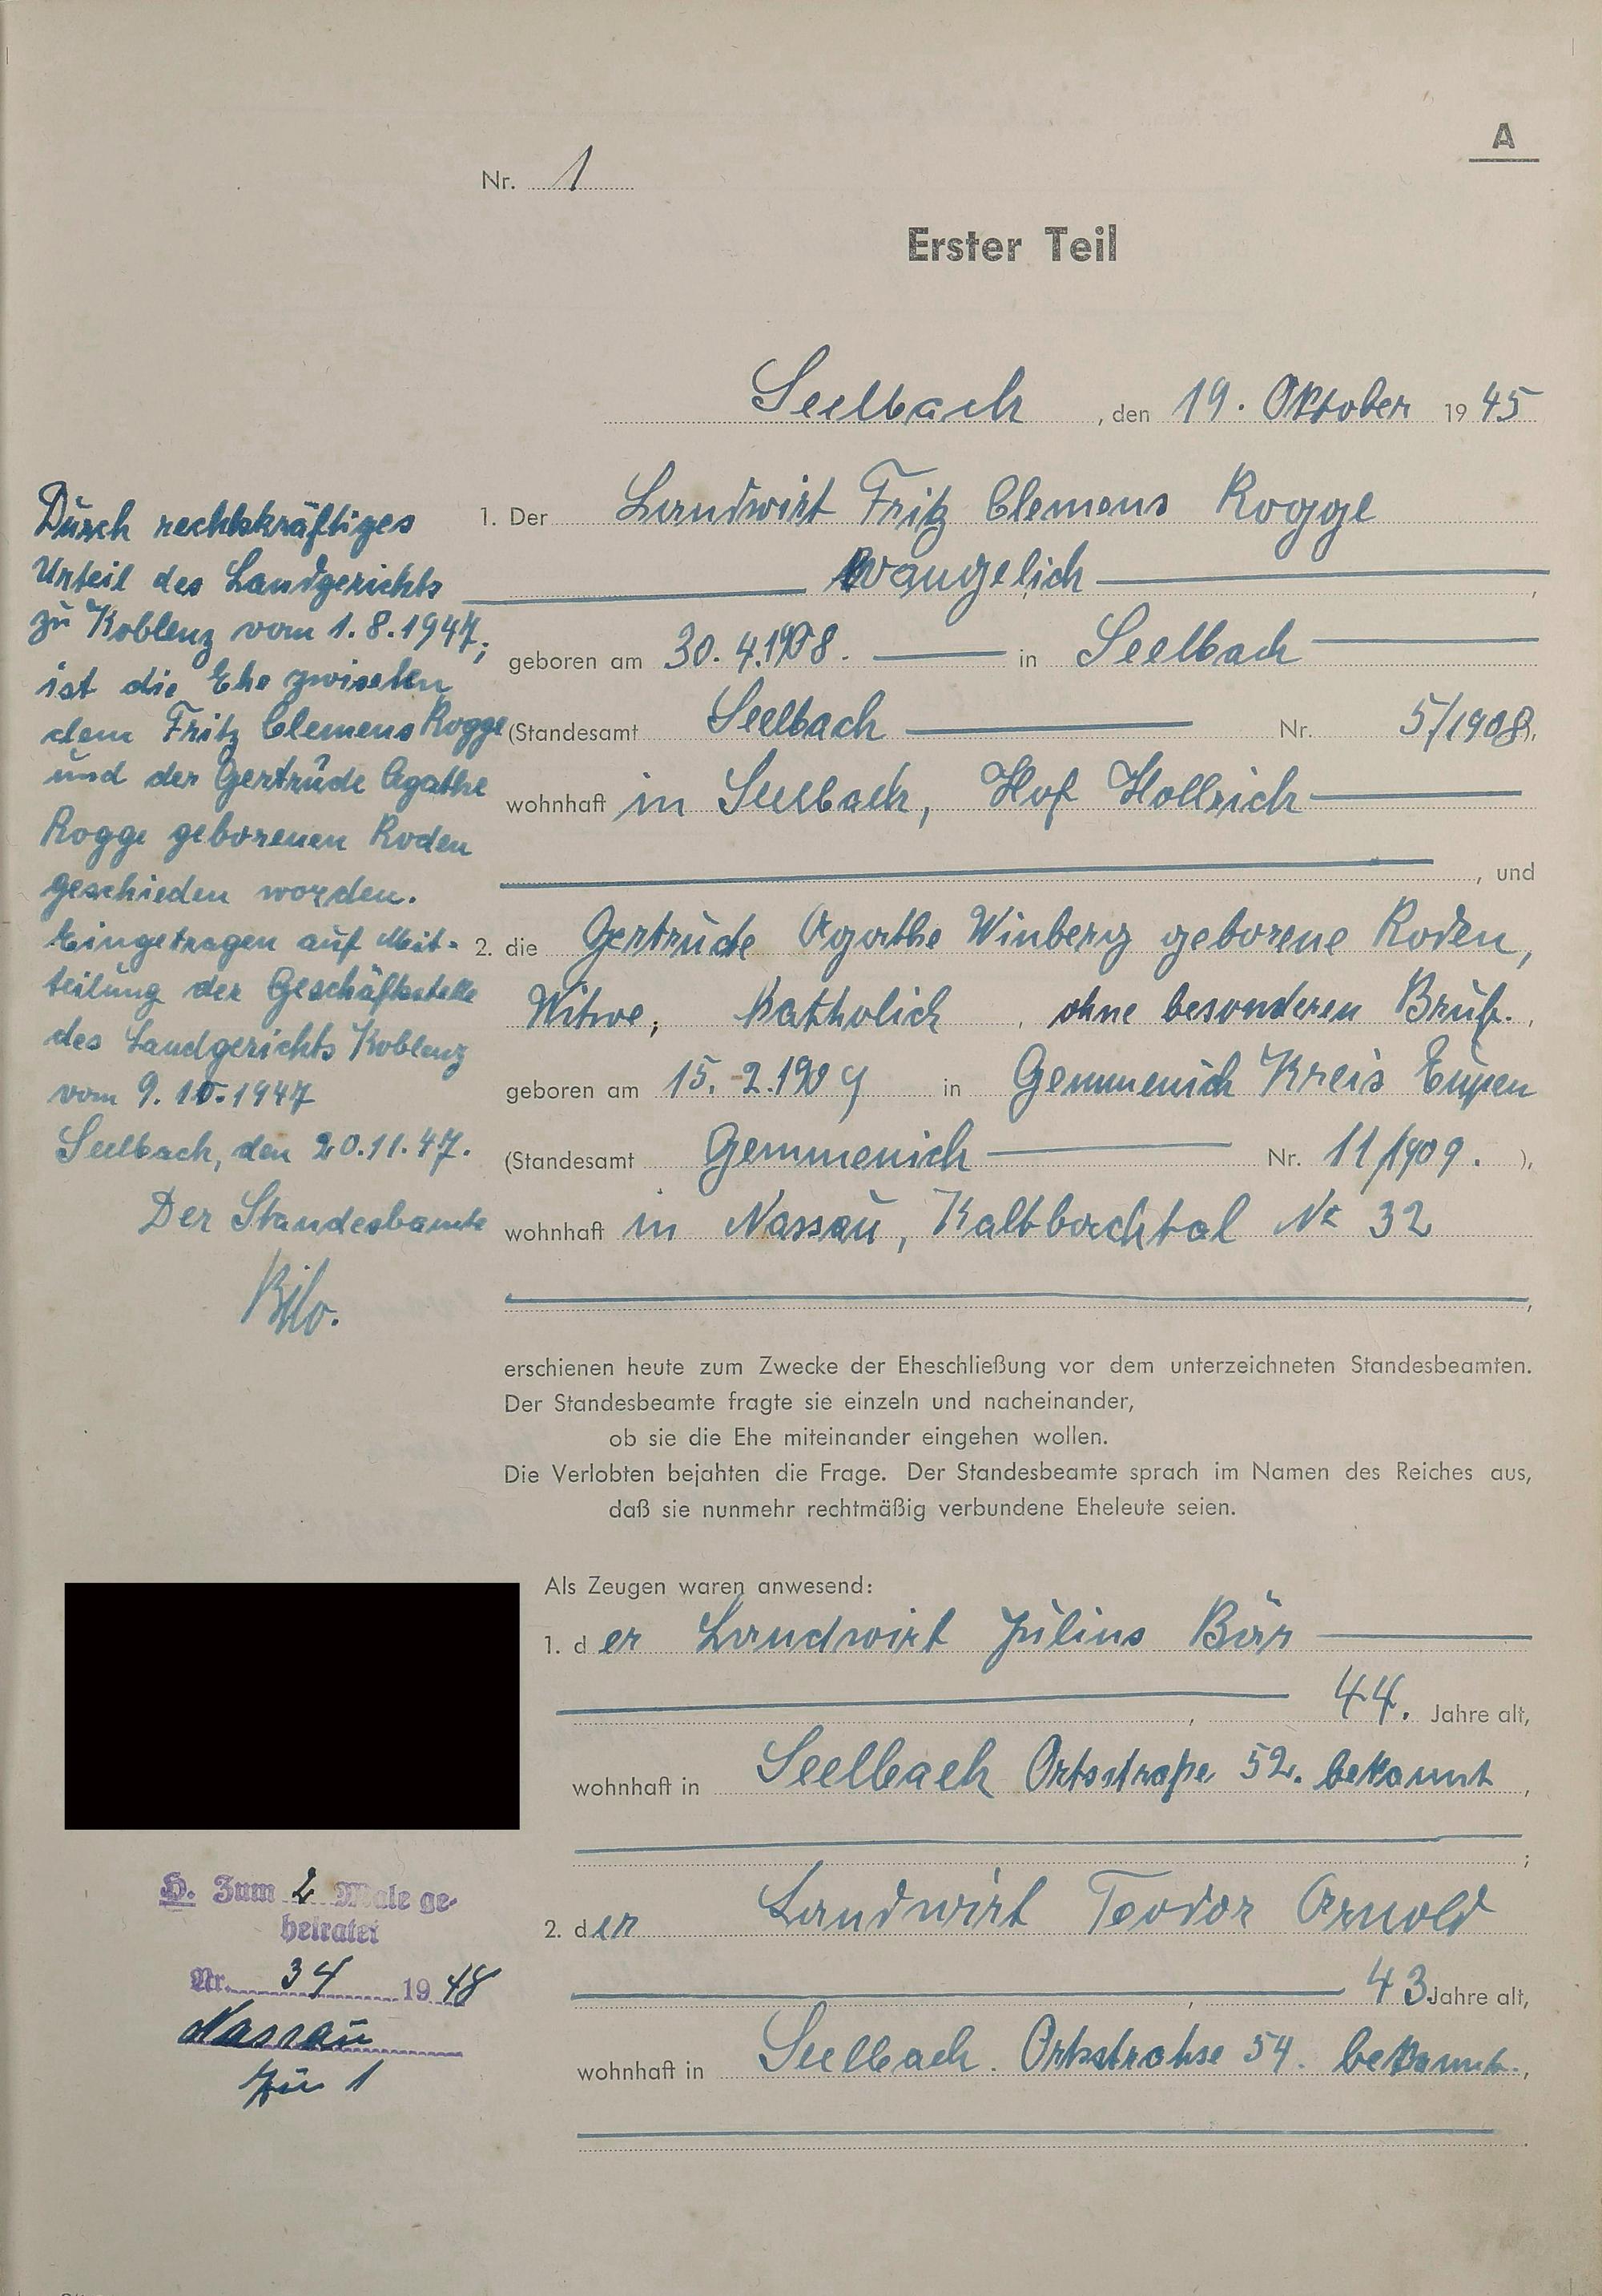 A
Nr. 1
Erster Teil
Seelbach, den 19. Oktober 1945
1. Der Landwirt Fritz Clemens Rogge
evangelich,
geboren am 30. 4. 1908. in Seelbach
(Standesamt Seelbach Nr. 5/1908),
wohnhaft in Seelbach, Hof Hollrich
, und
2. die Gertrude Agathe Winberg geborene Roden,
Witwe; Katholich, ohne besonderen Bruf.,
geboren am 15. 2. 1909 in Gemmenich Kreis Eupen
(Standesamt Gemmenich Nr. 11/1909. ),
wohnhaft in Nassau, Kaltbachtal Nr 32
erschienen heute zum Zwecke der Eheschließung vor dem unterzeichneten Standesbeamten.
Der Standesbeamte fragte sie einzeln und nacheinander,
ob sie die Ehe miteinander eingehen wollen.
Die Verlobten bejahten die Frage. Der Standesbeamte sprach im Namen des Reiches aus,
daß sie nunmehr rechtmäßig verbundene Eheleute seien.
Als Zeugen waren anwesend:
1. der Landwirt Julius Bär
, 44. Jahre alt,
wohnhaft in Seelbach Ortsstraße 52. bekannt,
;
2. der Landwirt Teodor Arnold
, 43 Jahre alt,
wohnhaft in Seelbach. Ortsstrahse 54. bekannt.,
Durch rechtskräftiges
Urteil des Landgerichts
zu Koblenz vom 1.8.1947;
ist die Ehe zwischen
dem Fritz Clemens Rogge
und der Gertrude Agathe
Rogge geborenen Roden
geschieden worden.
Eingetragen auf Mit-
teilung der Geschäftsstelle
des Landgerichts Koblenz
vom 9.10.1947
Seelbach, den 20.11.47.
Der Standesbamte
H. Zum 2 Male ge-
heiratet
Nr. 34 1948
Nassau
zu 1